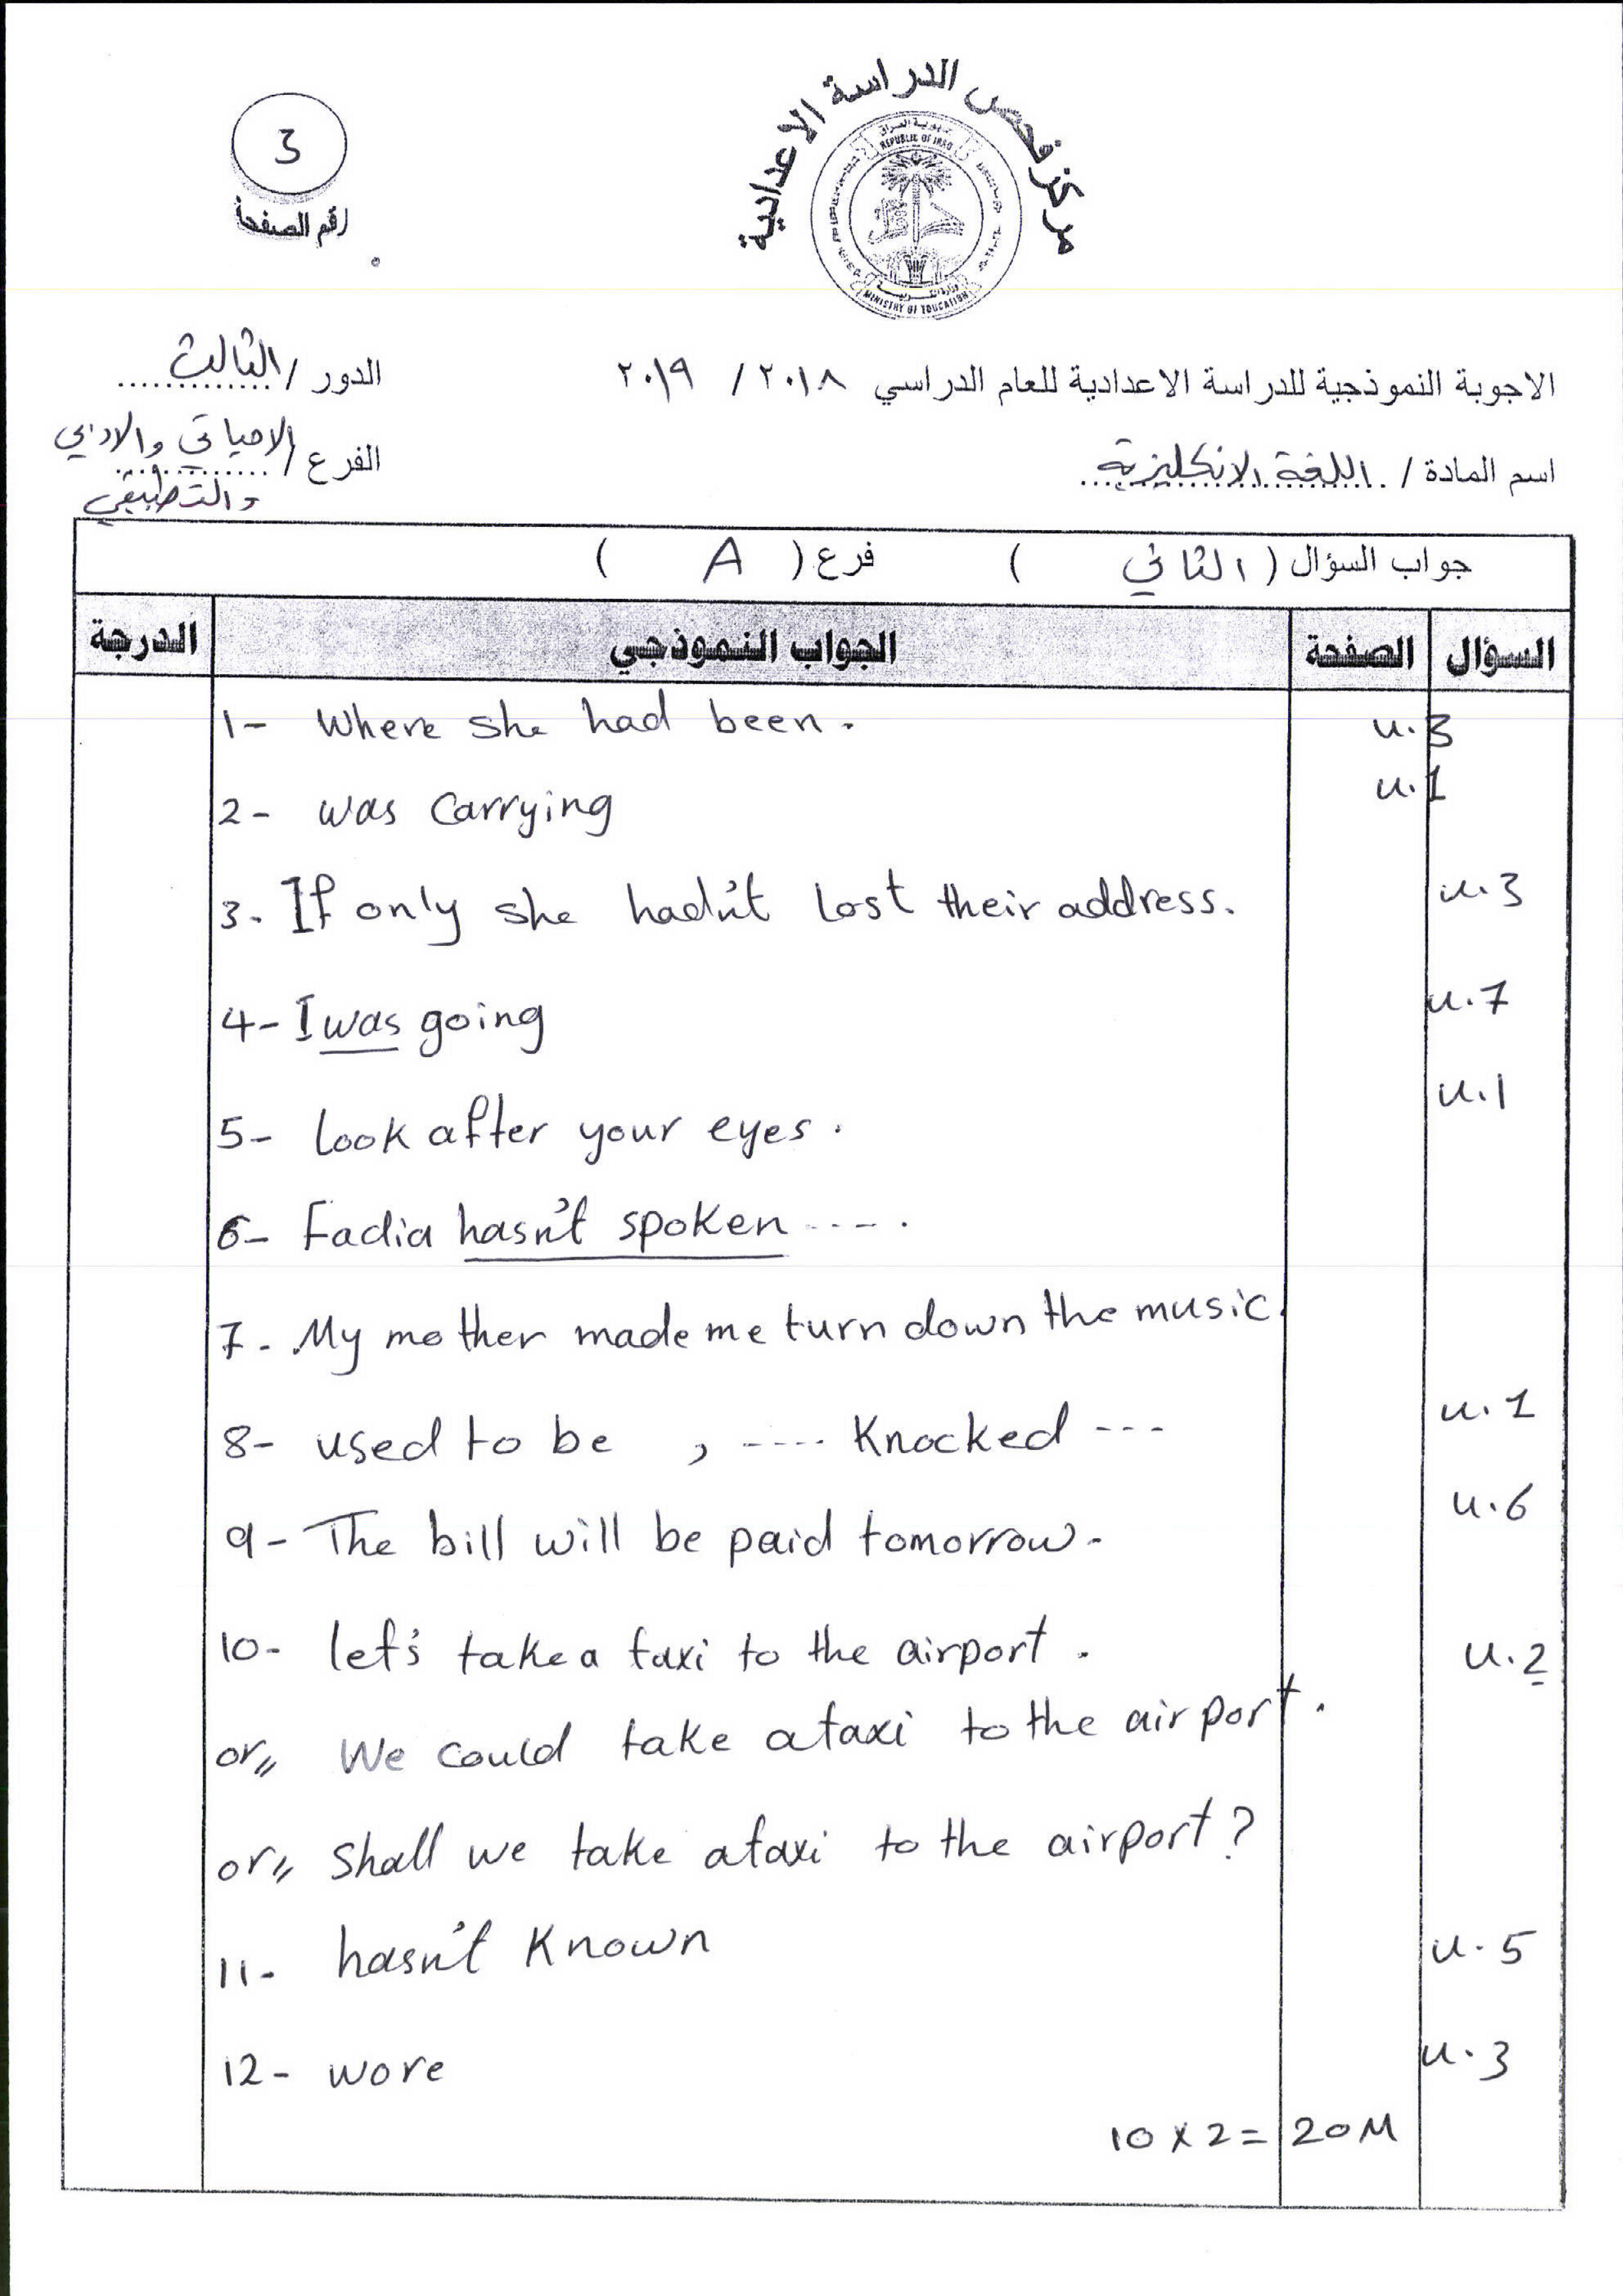 مركز فحص الدراسة الاعدادية
جمهورية العراق
REPUBLIC OF IRAQ
MINISTRY OF EDUCATION
3
رقم الصفحة
الاجوبة النموذجية للدراسة الاعدادية للعام الدراسي ٢٠١٨ / ٢٠١٩
الدور / الثالث
اسم المادة / اللغة الانكليزية
الفرع / الاحيائي والادبي
والتطبيقي
جواب السؤال ( الثاني ) فرع ( A )
السؤال الصفحة الجواب النموذجي الدرجة
1- Where she had been. u.3
2- was carrying u.1
3. If only she hadn't lost their address. u.3
4- I was going u.7
5- Look after your eyes. u.1
6- Fadia hasn't spoken ----.
7- My mother made me turn down the music.
8- used to be , ---- Knocked --- u.1
9- The bill will be paid tomorrow. u.6
10- let's take a taxi to the airport. u.2
or// We could take a taxi to the airport.
or// shall we take a taxi to the airport?
11- hasn't Known u.5
12- wore u.3
10 x 2 = 20 M